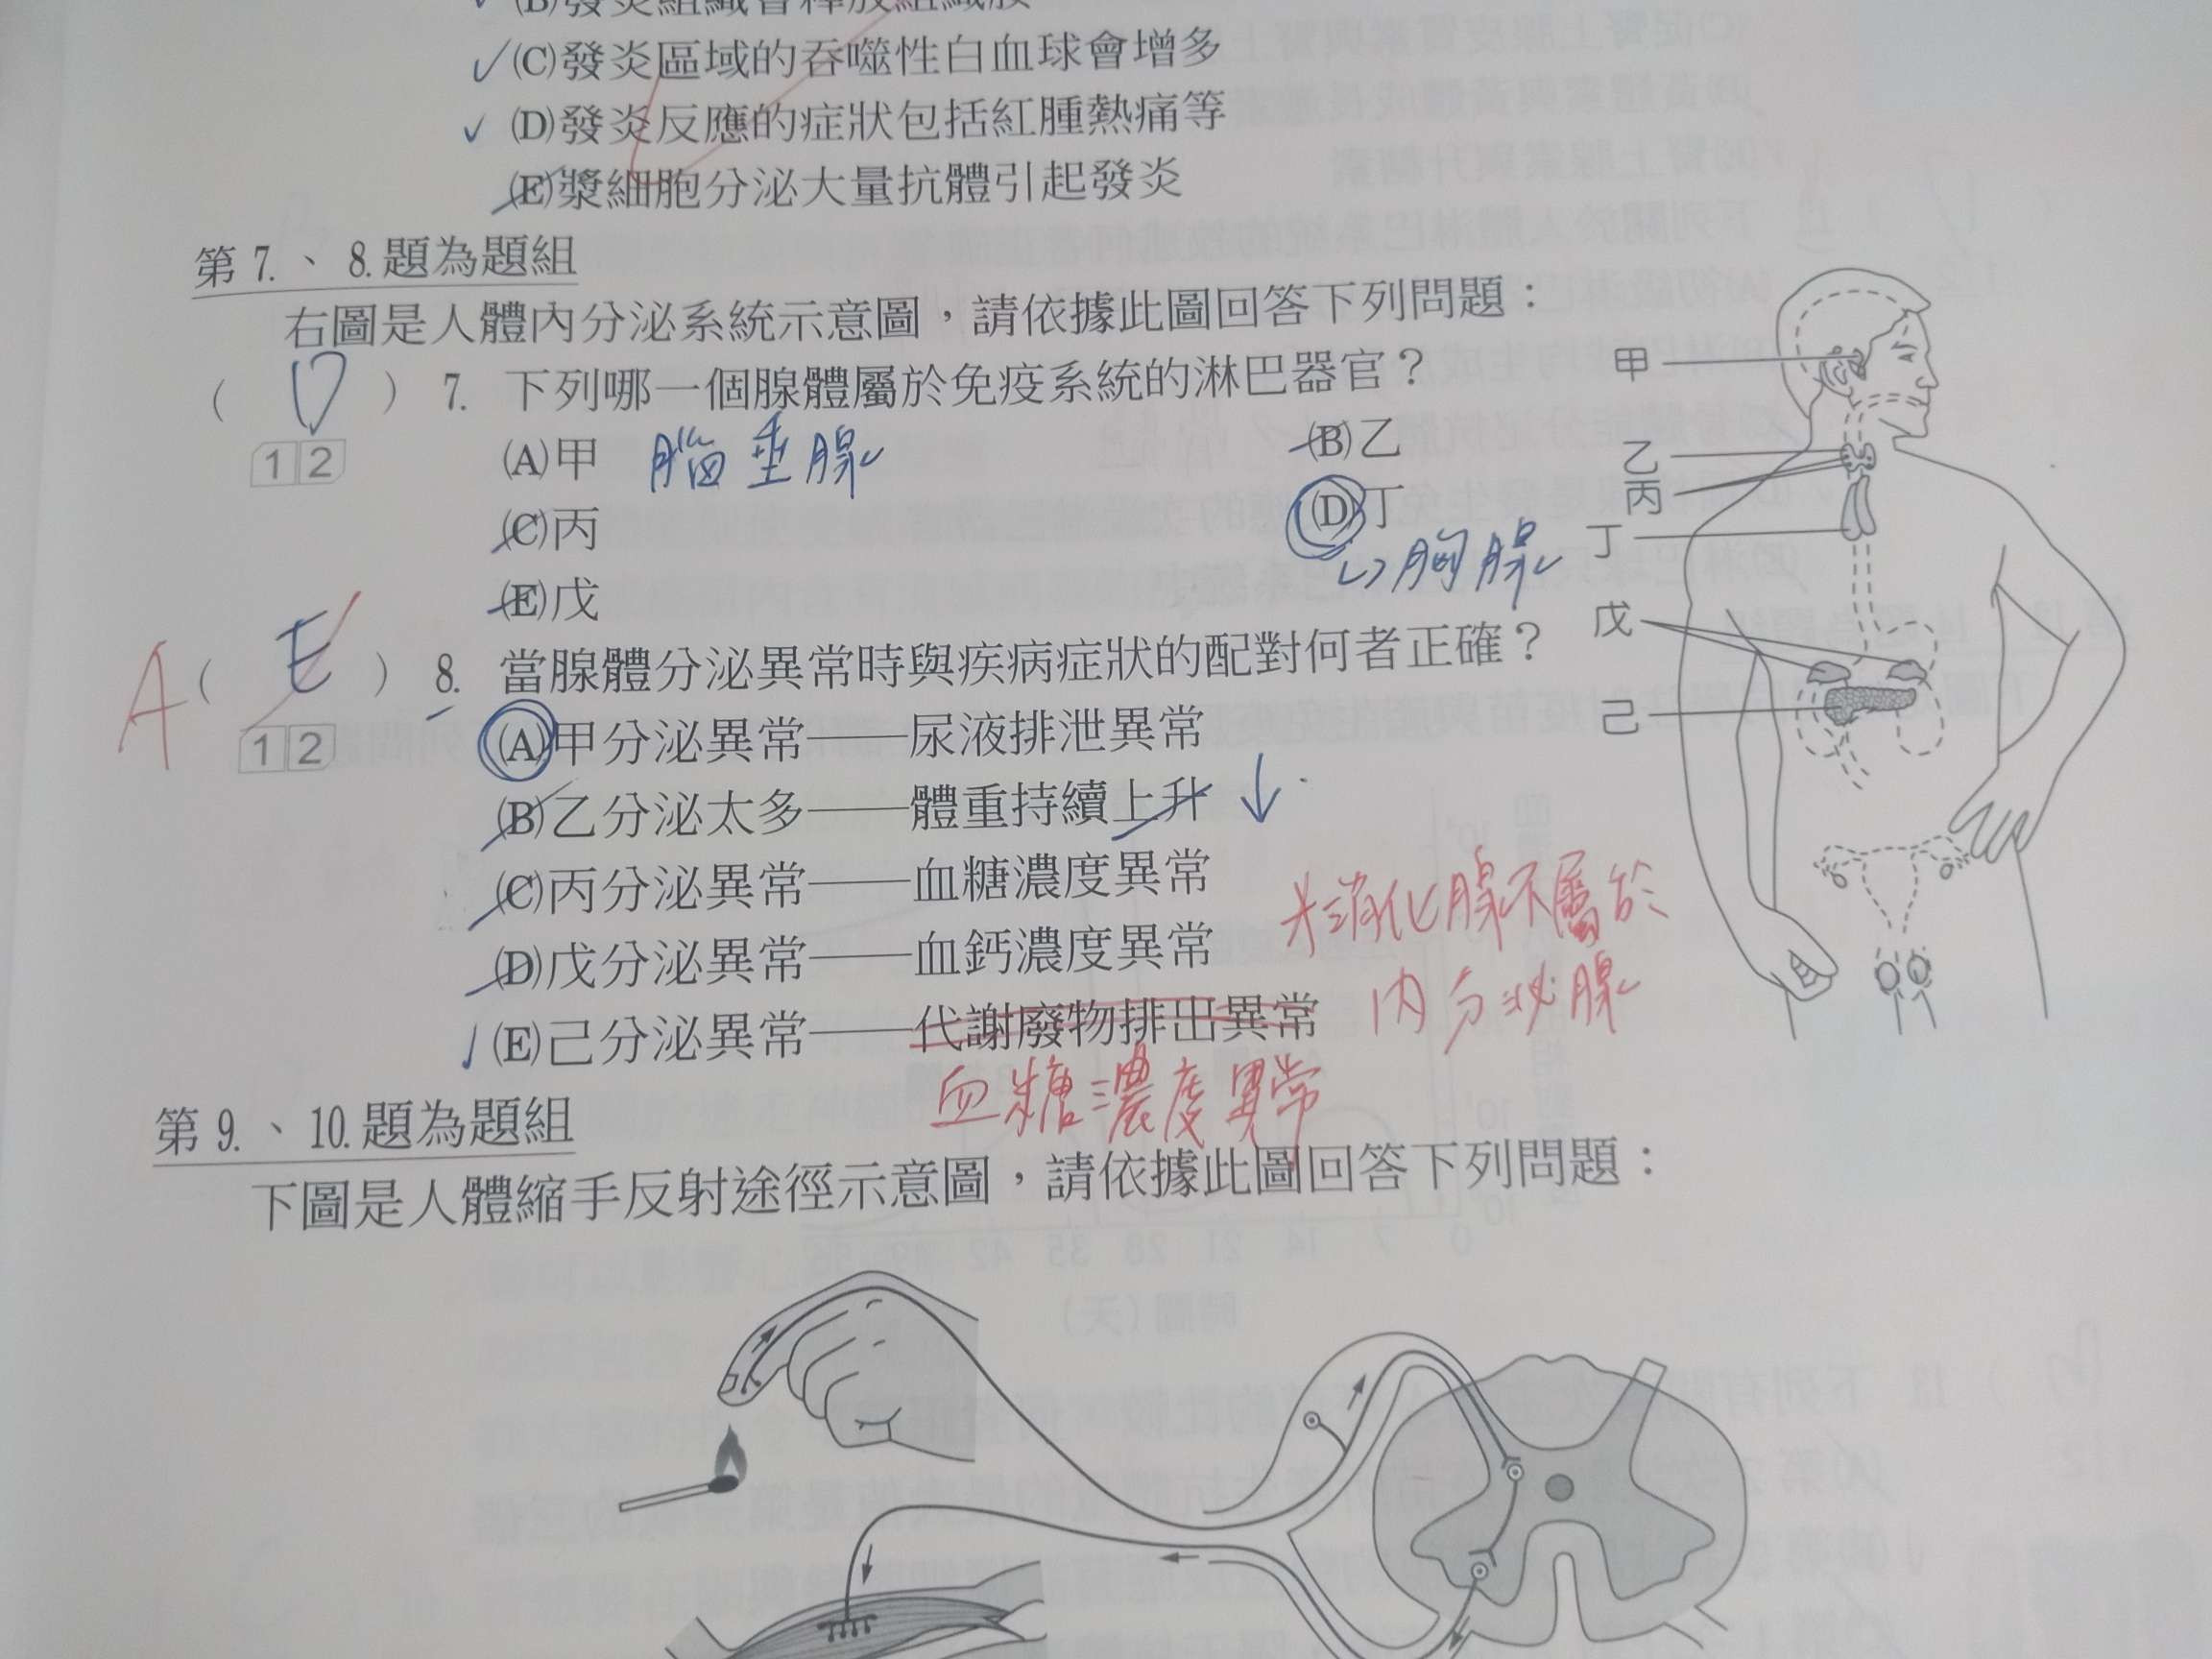 (B)發炎組織會釋放組織胺
✓(C)發炎區域的吞噬性白血球會增多
✓(D)發炎反應的症狀包括紅腫熱痛等
(E)漿細胞分泌大量抗體引起發炎
第 7. 、 8. 題為題組
右圖是人體內分泌系統示意圖，請依據此圖回答下列問題：
( D ) 7. 下列哪一個腺體屬於免疫系統的淋巴器官？
1 2
(A)甲 腦垂腺 (B)乙
(C)丙 (D)丁
↳胸腺
(E)戊
A ( E ) 8. 當腺體分泌異常時與疾病症狀的配對何者正確？
1 2
(A)甲分泌異常——尿液排泄異常
(B)乙分泌太多——體重持續上升 ↓
(C)丙分泌異常——血糖濃度異常
(D)戊分泌異常——血鈣濃度異常
✓(E)己分泌異常——代謝廢物排出異常
血糖濃度異常
消化腺不屬於
內分泌腺
甲
乙
丙
丁
戊
己
第 9. 、 10. 題為題組
下圖是人體縮手反射途徑示意圖，請依據此圖回答下列問題：